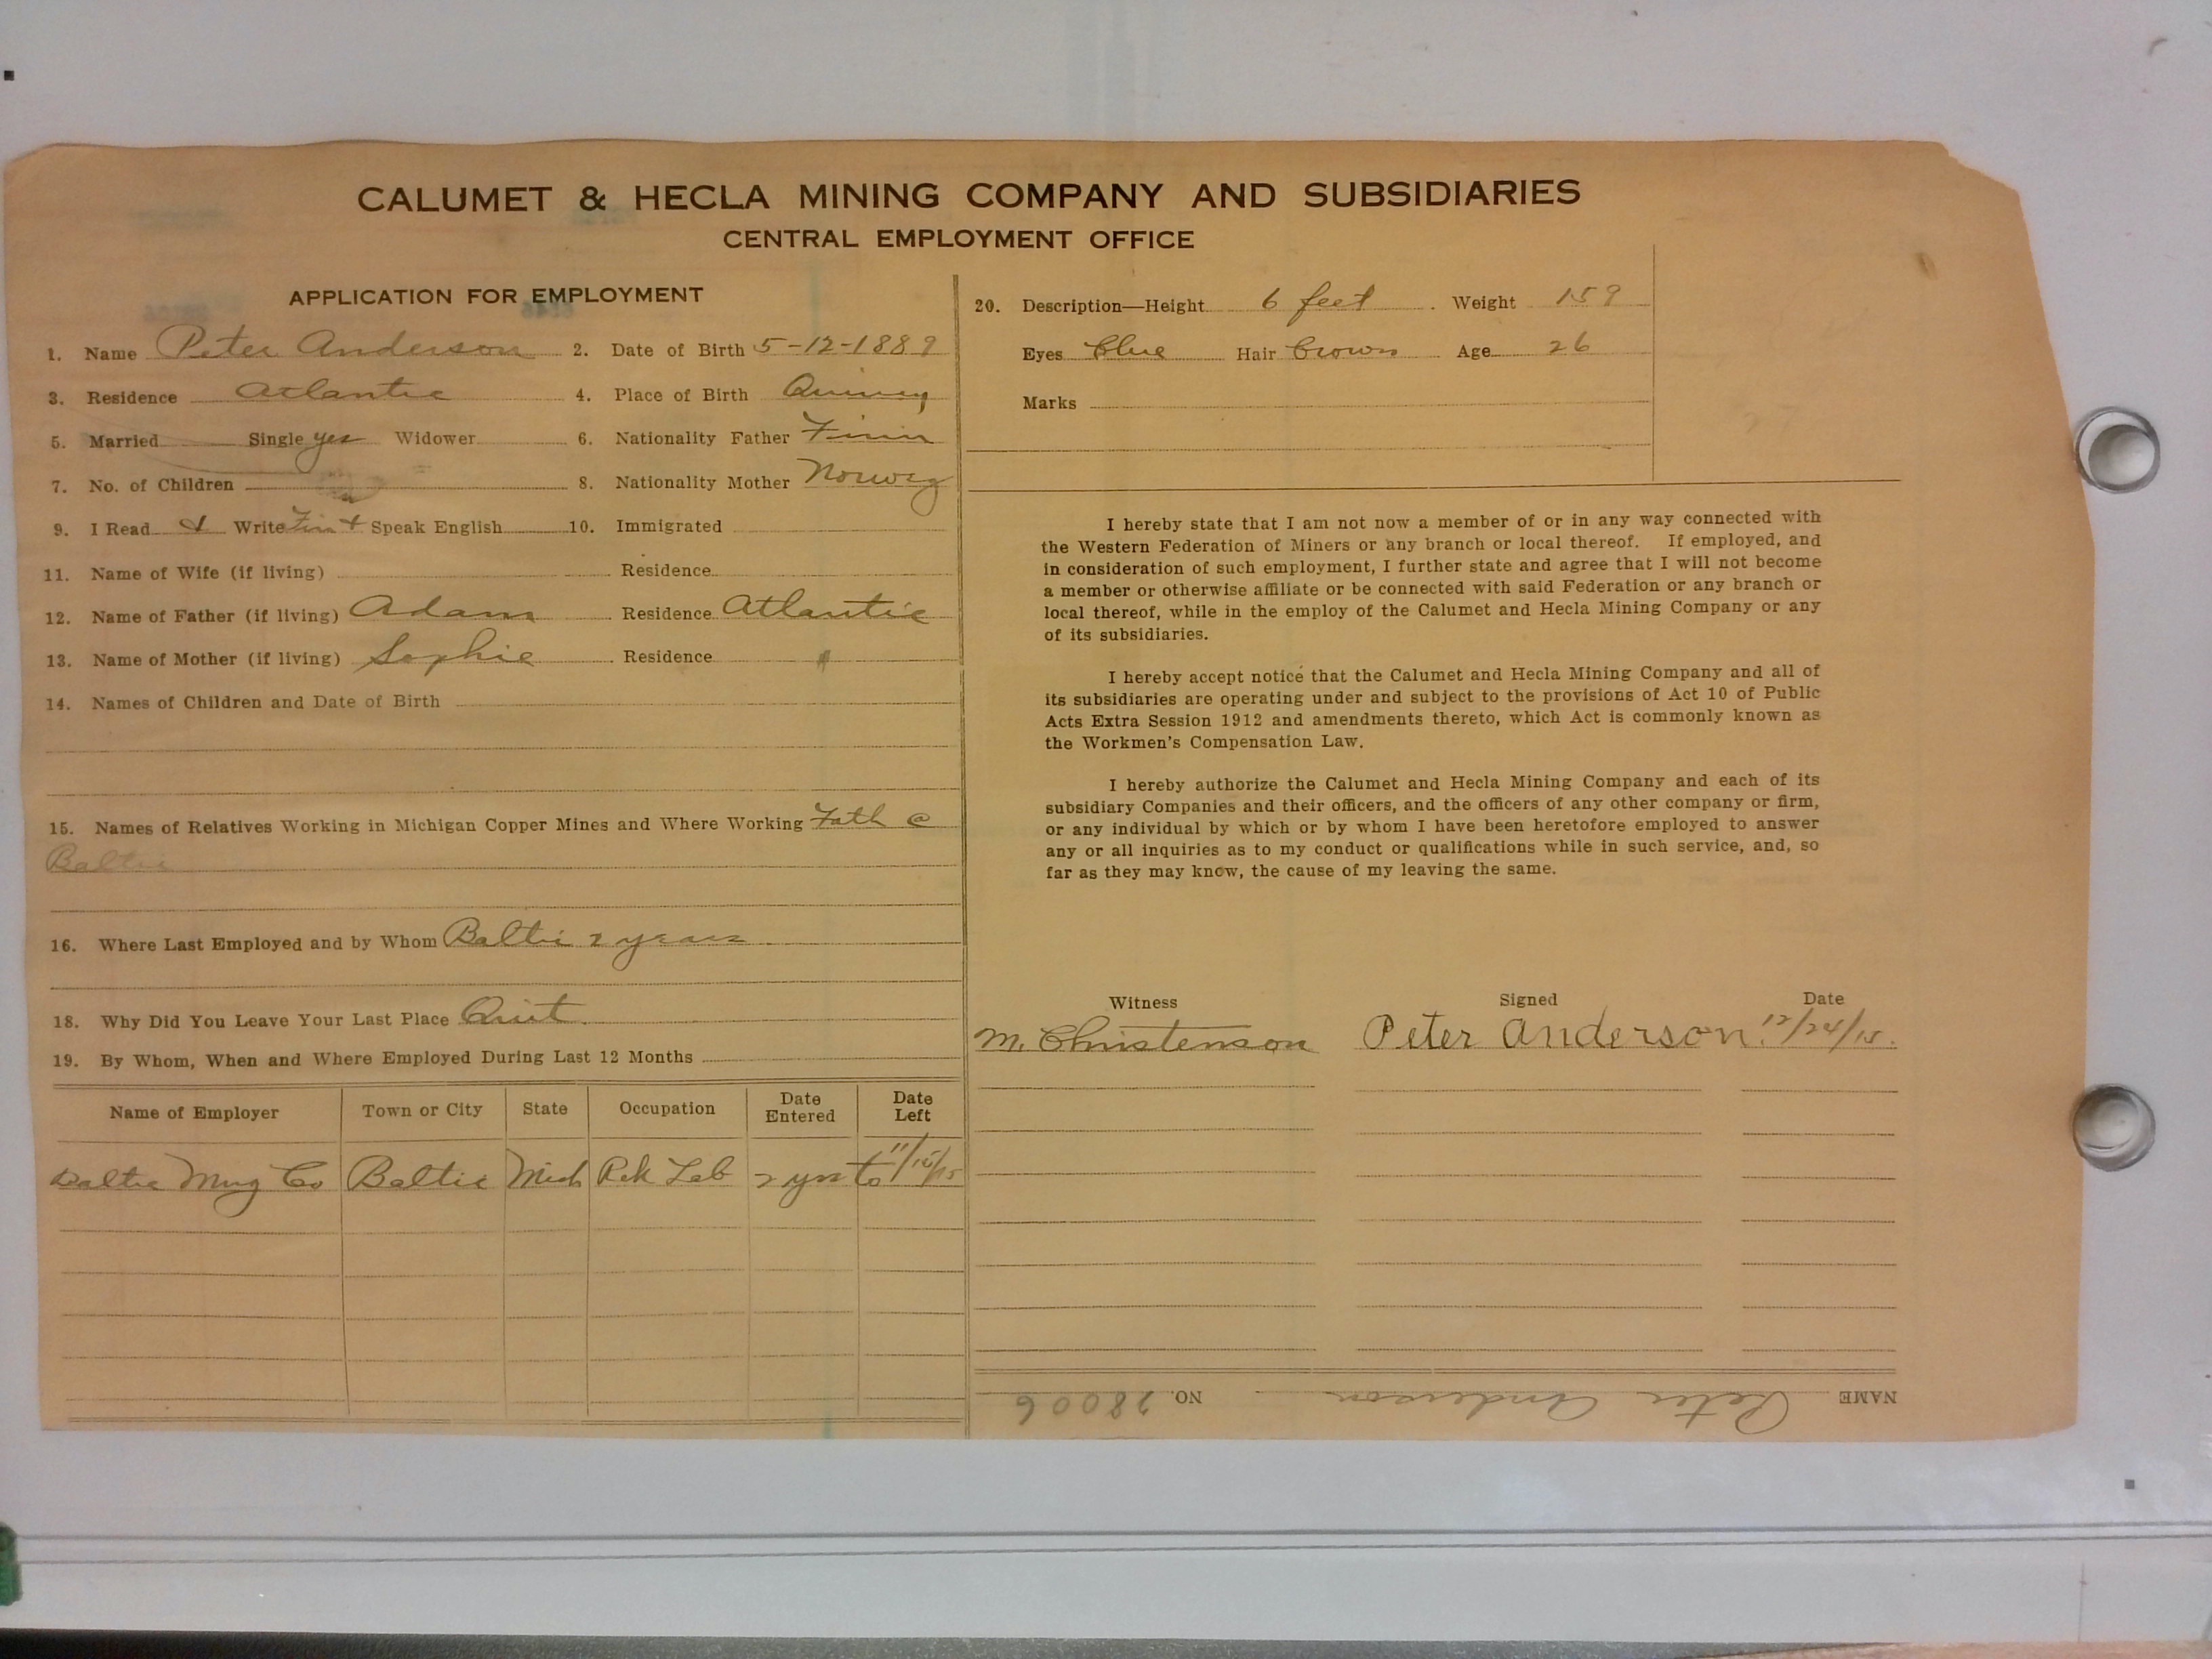 CALUMET & HECLA MINING COMPANY AND SUBSIDIARIES
CENTRAL EMPLOYMENT OFFICE
APPLICATION FOR EMPLOYMENT
1. Name Peter Anderson 2. Date of Birth 5-12-1889
3. Residence Atlantic 4. Place of Birth Quincy
5. Married Single yes Widower 6. Nationality Father Finn
7. No. of Children 8. Nationality Mother Norweg
9. I Read & Write Fin & Speak English 10. Immigrated
11. Name of Wife (if living) Residence
12. Name of Father (if living) Adam Residence Atlantic
13. Name of Mother (if living) Sophie Residence "
14. Names of Children and Date of Birth
15. Names of Relatives Working in Michigan Copper Mines and Where Working Fath @
Baltic
16. Where Last Employed and by Whom Baltic 2 years
18. Why Did You Leave Your Last Place Quit
19. By Whom, When and Where Employed During Last 12 Months
Name of Employer Town or City State Occupation Date Entered Date Left
Baltic Mng Co Baltic Mich Rck Lab 2 yrs to 11/15/15
20. Description—Height 6 feet. Weight 159
Eyes Blue Hair Brown Age 26
Marks
I hereby state that I am not now a member of or in any way connected with
the Western Federation of Miners or any branch or local thereof. If employed, and
in consideration of such employment, I further state and agree that I will not become
a member or otherwise affiliate or be connected with said Federation or any branch or
local thereof, while in the employ of the Calumet and Hecla Mining Company or any
of its subsidiaries.
I hereby accept notice that the Calumet and Hecla Mining Company and all of
its subsidiaries are operating under and subject to the provisions of Act 10 of Public
Acts Extra Session 1912 and amendments thereto, which Act is commonly known as
the Workmen's Compensation Law.
I hereby authorize the Calumet and Hecla Mining Company and each of its
subsidiary Companies and their officers, and the officers of any other company or firm,
or any individual by which or by whom I have been heretofore employed to answer
any or all inquiries as to my conduct or qualifications while in such service, and, so
far as they may know, the cause of my leaving the same.
Witness Signed Date
M. Christenson Peter Anderson. 12/24/15.
NAME Peter Anderson NO. 28006